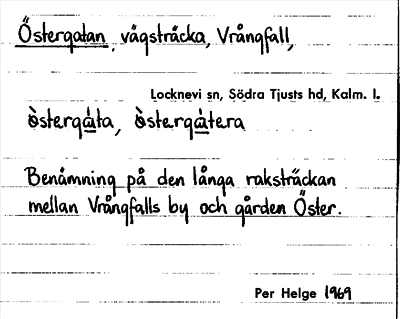 Östergatan, vägsträcka, Vrångfall,
Locknevi sn, Södra Tjusts hd, Kalm. l.
östergàta, östergàtera
Benämning på den långa raksträckan
mellan Vrångfalls by och gården Öster.
Per Helge 1969